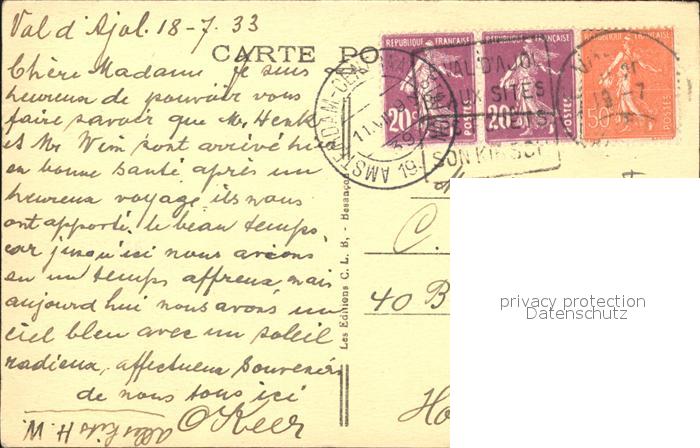 Val d'Ajol. 18-7.33
CARTE PO
Chère Madame je suis
heureux de pouvoir vous
faire savoir que Mr Henk
et Mr Wim sont arrivé hier
en bonne santé après un
heureux voyage, ils nous
ont apporté le beau temps,
car jusqu'ici nous avions
eu un temps affreux mais
aujourd'hui nous avons un
ciel bleu avec un soleil
radieux, affectueux souvenirs
de nous tous ici
H. W.
Les Editions C. L. B, - Besançon
REPUBLIQUE FRANÇAISE
20c
POSTES
REPUBLIQUE FRANÇAISE
20c
POSTES
REPUBLIQUE FRANÇAISE
50
POSTES
AMSTERDAM-CENTRAAL
VAL D'AJOL
SITES
SON KIRSCH
C.
40 B
Ho
privacy protection
Datenschutz